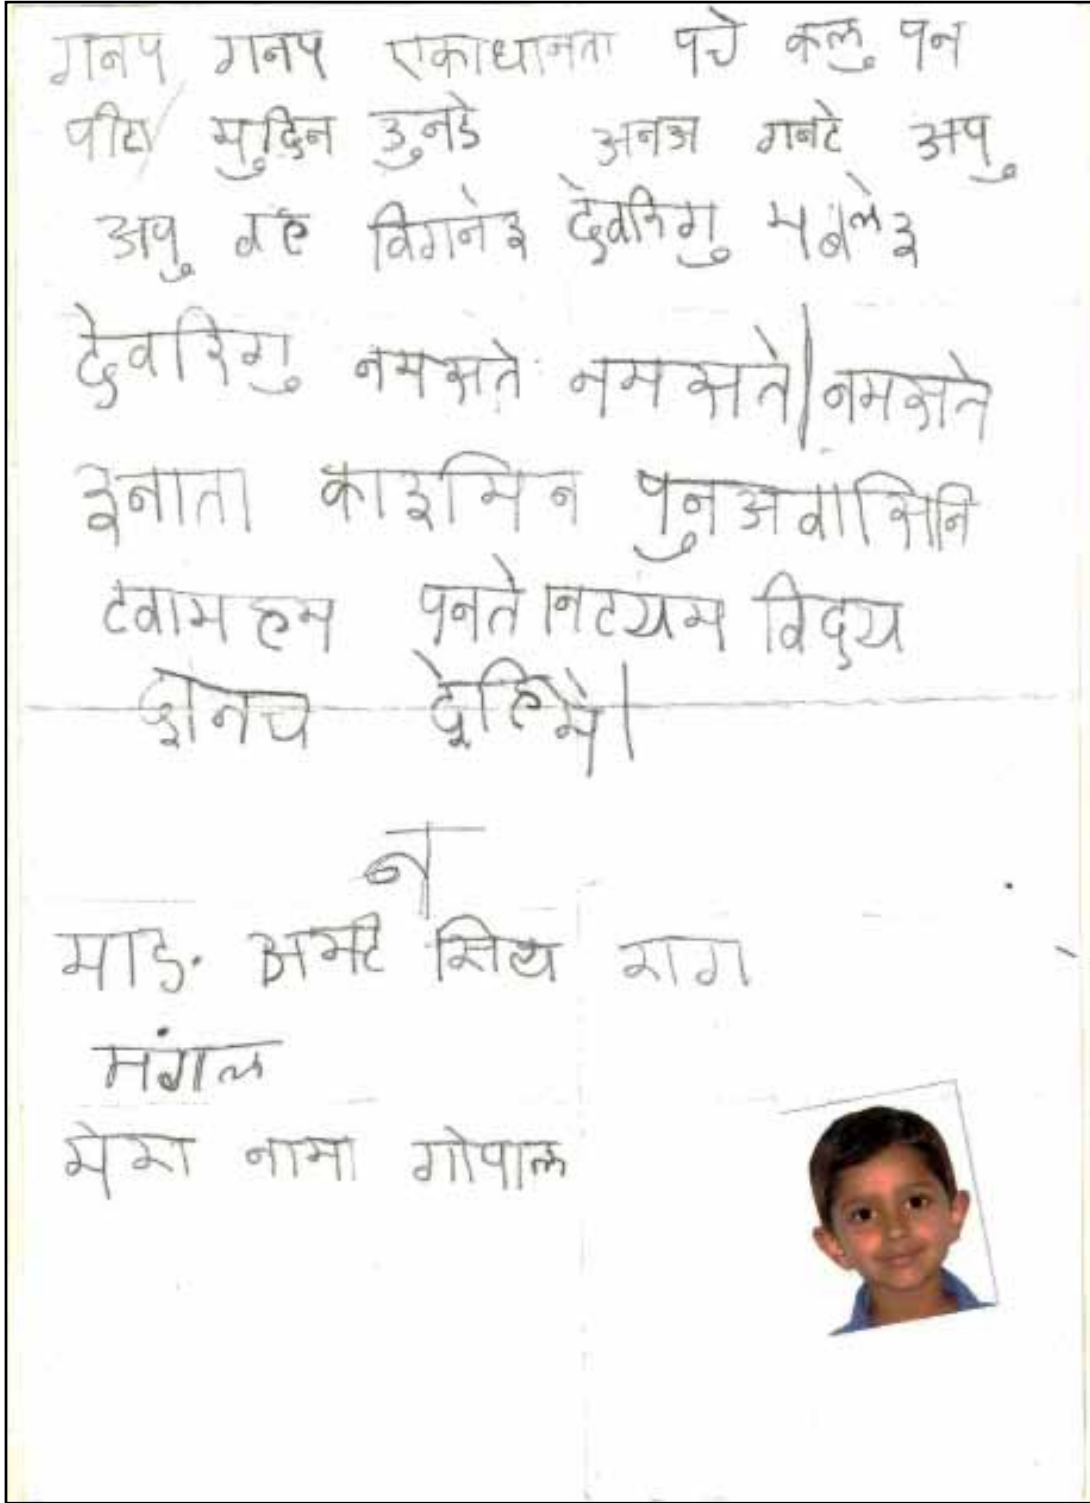 गनप गनप एकाधानता पचे कलु पन
पीटा मुदिन उुनडे अनञ गनटे अपु
अपु वह विगनेइ देवरिगु मबलेइ
देवरिगु नमसते नमसते| नमसते
इनाता काइमिन पुनअवासिनि
टवामहम पनते निटयम विद्य
दोनच देहिमे|
न
माइ. अमटे सिथ राग
मंगल
मेरा नामा गोपाल